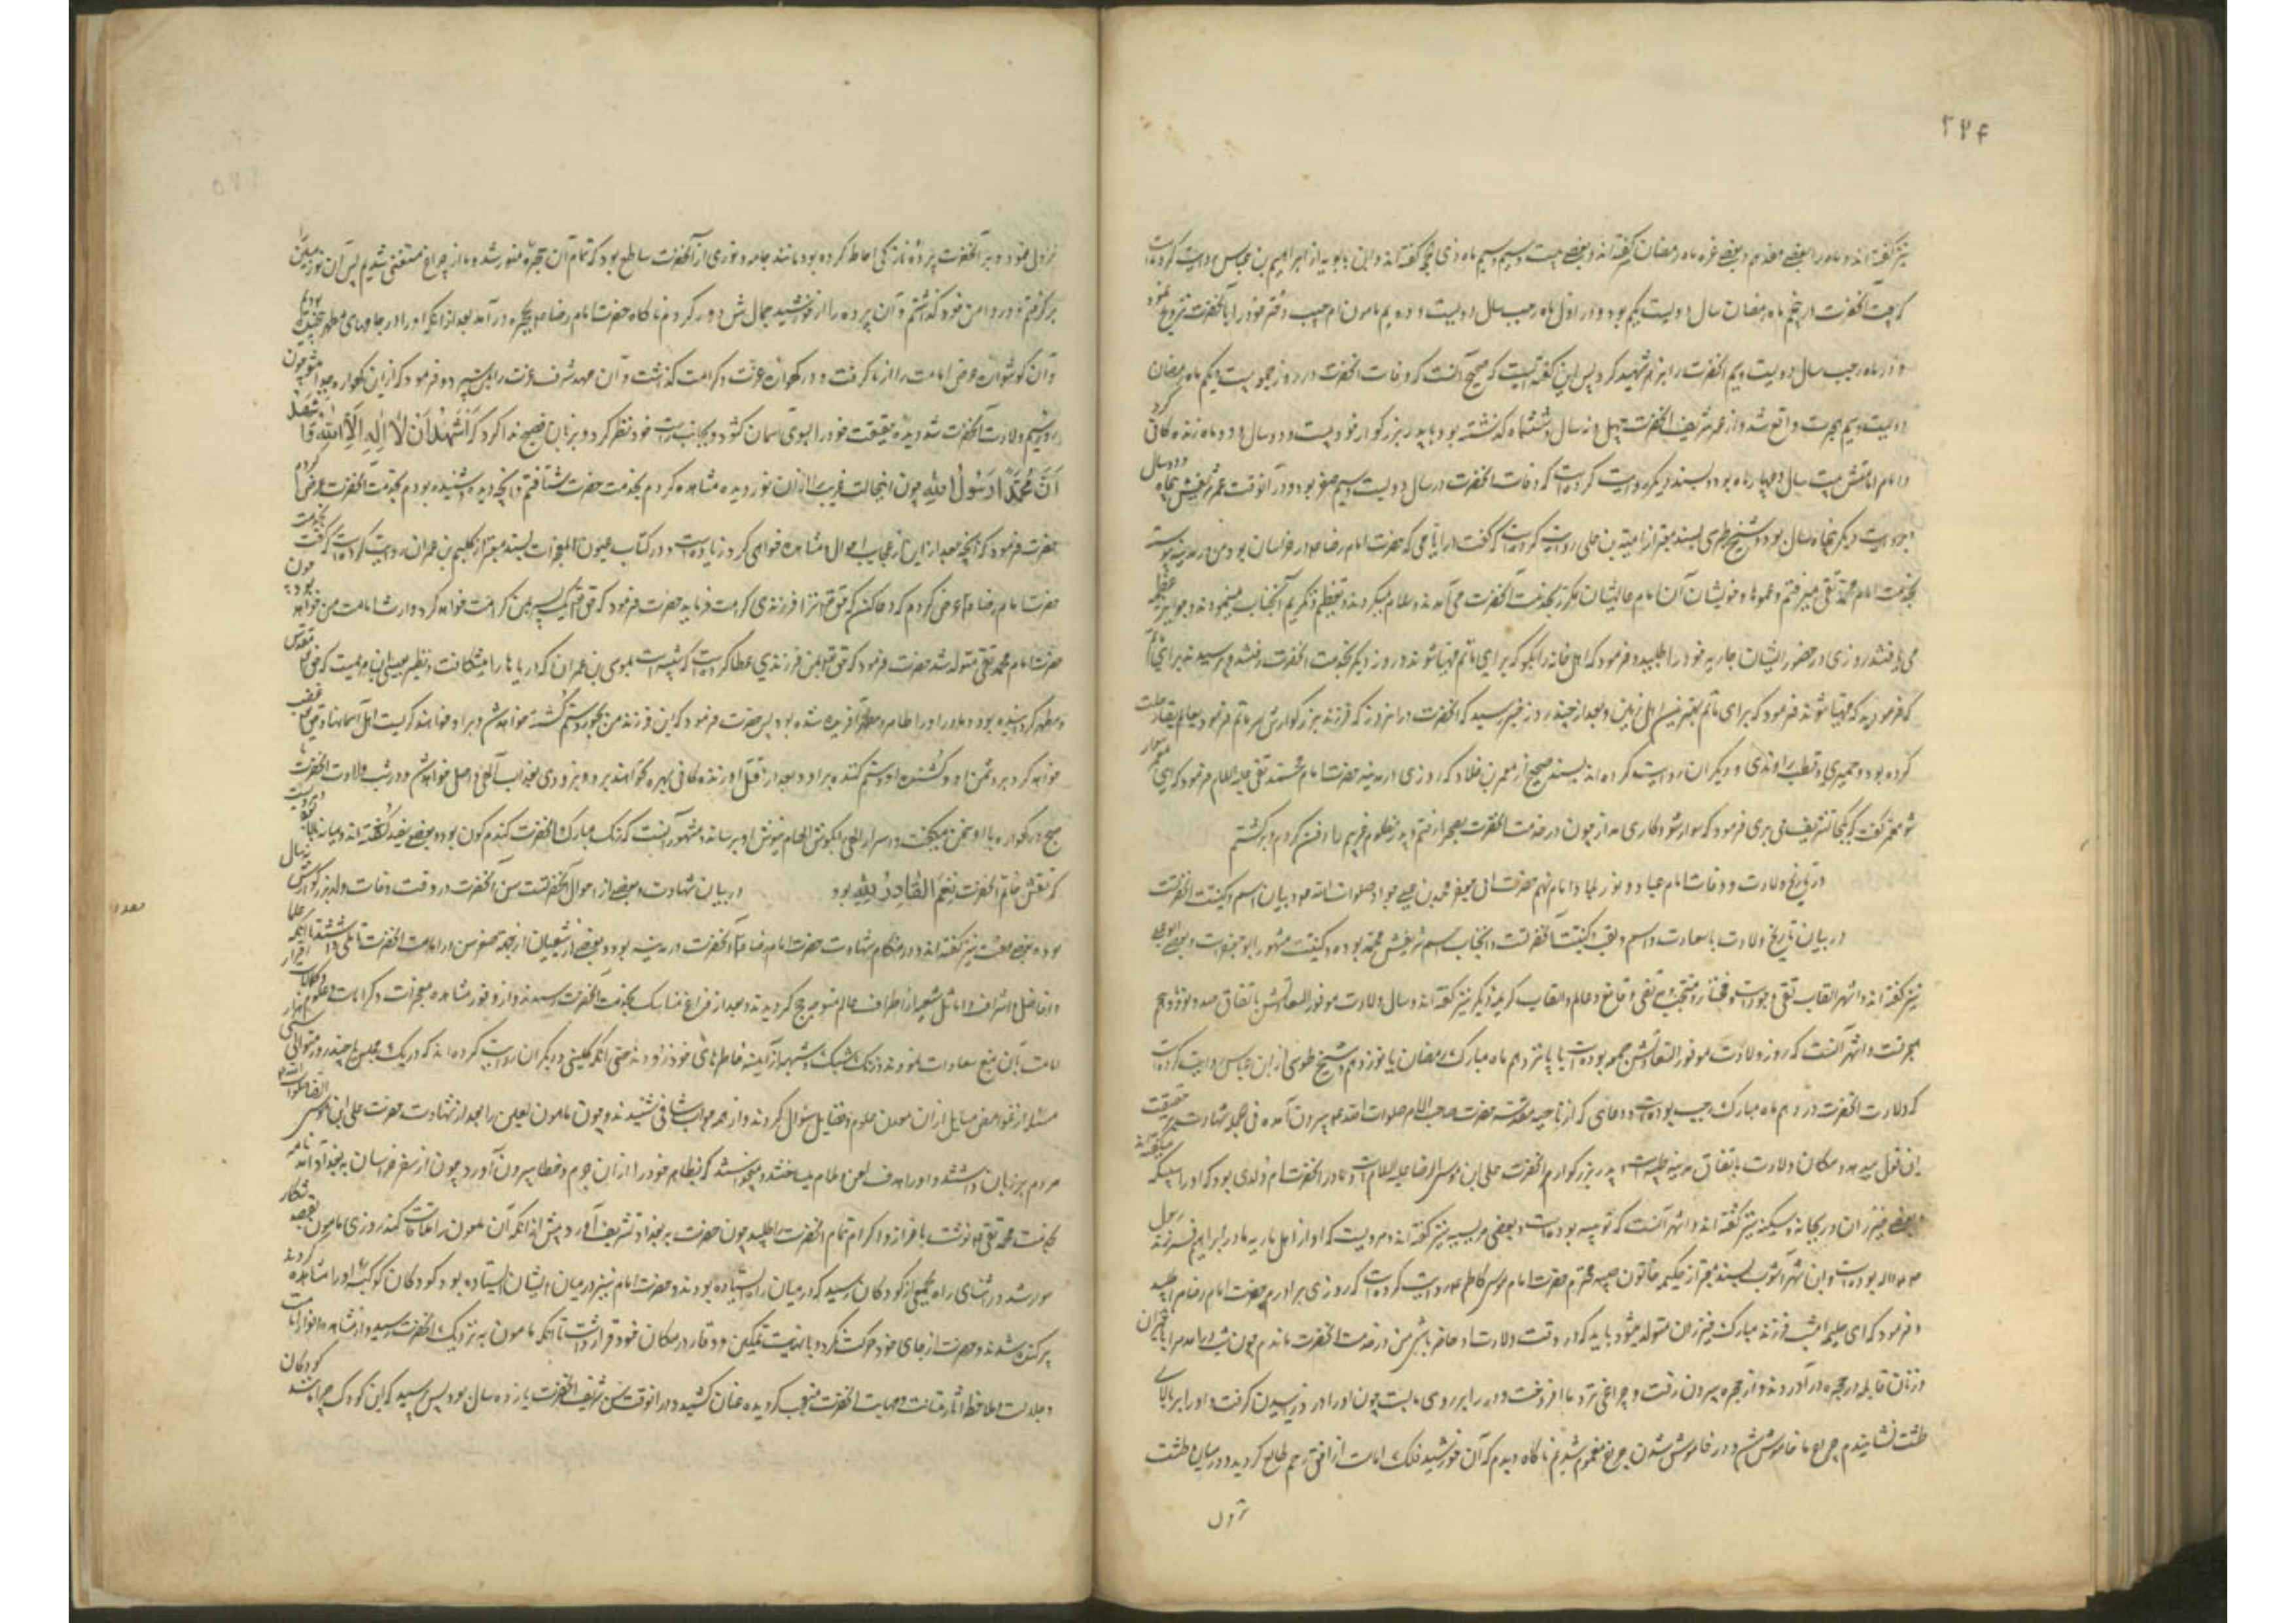 ۲۷۴
نیز گفته‌اند و ماه را بعضی هفدهم و بعضی غره ماه رمضان گفته‌اند و بعضی بیست و سیم ماه ذی‌القعده گفته‌اند و ابن بابویه از ابراهیم بن عباس روایت کرده است
که بیعت آنحضرت در پنجم ماه رمضان سال دویست و یکم بود و در اول ماه رجب سال دویست و دویم مامون ام حبیب دختر خود را بآنحضرت تزویج نمود
و در ماه رجب سال دویست و سیم آنحضرت را بزهر شهید کرد پس ابن بابویه گفته است که صحیح آنست که وفات آنحضرت در روز جمعه بیست و یکم ماه رمضان
دویست و سیم هجرت واقع شد و از عمر شریف آنحضرت چهل و نه سال و ششماه گذشته بود با پدر بزرگوار خود بیست و نه سال و دو ماه زندگانی کرد
و ایام امامتش بیست سال و چهار ماه بود و بسند دیگر روایت کرده است که وفات آنحضرت در سال دویست و سیم صفر بود و در آنوقت عمر شریفش پنجاه و دو سال
و بروایت دیگر پنجاه سال بود و شیخ طبرسی بسند معتبر از امیة بن علی روایت کرده است که گفت در ایامی که حضرت امام رضا در خراسان بود من در مدینه پیوسته
بخدمت امام محمد تقی میرفتم و عموها و خویشان آن امام عالیشان مکرر بخدمت آنحضرت می‌آمدند و سلام میکردند و تعظیم و تکریم آنجناب مینمودند
روزی در حضور ایشان جاریه خود را طلبید و فرمود که اهل خانه را بگو که برای ماتم مهیا شوند و در روز دیگر بخدمت آنحضرت رفتند و پرسیدند برای ماتم
که فرمودید که مهیا شوند فرمود که برای ماتم بهترین اهل زمین و بعد از چند روز خبر رسید که آنحضرت در آن روز که فرزند بزرگوارش امر بماتم فرمود بعالم بقا رحلت
کرده بود و حمیری و قطب راوندی و دیگران روایت کرده‌اند بسند صحیح از معمر بن خلاد که روزی در مدینه حضرت امام محمد تقی علیه السلام فرمود که ای معمر سوار
شو معمر گفت که بکجا تشریف می‌بری فرمود که سوار شو و کاری مدار چون در خدمت آنحضرت بصحرا رفتم
در تاریخ ولادت و وفات امام عباد و نور بلاد امام نهم حضرت ابی جعفر محمد بن علی جواد صلوات الله علیه در بیان اسم و کنیت آنحضرت
در بیان تاریخ ولادت باسعادت و اسم و لقب و کنیت آنحضرت است و آنجناب اسم شریفش محمد بوده و کنیت مشهور ابو جعفر است و بعضی ابو علی
نیز گفته‌اند و اشهر القاب تقی و جواد است و مختار و منتجب و مرتضی و قانع و عالم و القاب کریمه دیگر نیز گفته‌اند و سال ولادت موفور السعادتش باتفاق صد و نود و پنجم
هجرتست و اشهر آنست که روز ولادت موفور السعادتش جمعه بوده است یا پانزدهم ماه مبارک رمضان یا نوزدهم و شیخ طوسی از ابن عیاش روایت کرده است
که ولادت آنحضرت در دهم ماه مبارک رجب بوده است و دعای که از ناحیه مقدسه حضرت صاحب الامر صلوات الله علیه بیرون آمده فی الجمله شهادت بر حقیقت
این قول میدهد و مکان ولادت باتفاق مدینه طیبه است و پدر بزرگوارم آنحضرت علی ابن موسی الرضا علیه السلام است و مادر آنحضرت ام ولدی بود که او را سبیکه میگفتند
و بعضی خیزران و ریحانه و سکینه نیز گفته‌اند و اشهر آنست که نوبیه بوده است و بعضی مریسیه نیز گفته‌اند و مرویست که او از اهل ماریه مادر ابراهیم فرزند رسول
بوده است و ابن شهرآشوب بسند معتبر از حکیمه خاتون صبیه محترم حضرت امام موسی کاظم روایت کرده است که روزی برادرم حضرت امام رضا مرا طلبید
و فرمود که ای حکیمه امشب فرزند مبارک خیزران متولد میشود باید که در وقت ولادت او حاضر باشی من در خدمت آنحضرت ماندم چون شب در آمد مرا با خیزران
و زنان قابله در حجره در آورد و از حجره بیرون رفت و چراغی نزد ما افروخت و در را بر روی ما بست چون او را درد زائیدن گرفت و او را بر بالای
طشت نشاندیم چراغ ما خاموش شد و از خاموش شدن چراغ مغموم شدیم ناگاه دیدیم که آن خورشید فلک امامت از افق رحم طالع گردید و در میان طشت
نزول
نزول نمود و بر آنحضرت پرده نازکی احاطه کرده بود مانند جامه و نوری از آنحضرت ساطع بود که تمام آن حجره منور شد و ما از چراغ مستغنی شدیم پس آن نور مبین را
برگرفتم و در دامن خود گذاشتم و آن پرده را از خورشید جمالش دور کردم ناگاه حضرت امام رضا بحجره در آمد بعد از آنکه او را در جامهای مطهر پیچیده بودیم
و آن گوشواره عرش امامت را از ما گرفت و در گهواره عزت و کرامت گذاشت و آن مهد شرف و عزت را بمن سپرد و فرمود که از این گهواره جدا مشو چون
روز سیم ولادت آنحضرت شد دیده حقیقت خود را بسوی آسمان گشود و بجانب راست و چپ خود نظر کرد و بزبان فصیح ندا کرد که اَشْهَدُ اَنْ لا اِلهَ اِلَّا اللهُ وَ اَشْهَدُ
اَنَّ مُحَمَّداً رَسُولُ اللهِ چون اینحالت غریب را از آن نور دیده مشاهده کردم بخدمت حضرت شتافتم و آنچه دیده و شنیده بودم بخدمت آنحضرت عرض کردم
حضرت فرمود که آنچه بعد از این از عجایب احوال او مشاهده خواهی کرد زیاده است و در کتاب عیون المعجزات بسند معتبر از کلیم بن عمران روایت کرده است که گفت بخدمت
حضرت امام رضا عرض کردم که دعا کن که حق تعالی ترا فرزندی کرامت فرماید حضرت فرمود که حق تعالی یک پسر بمن کرامت خواهد کرد و وارث امامت من خواهد بود چون
حضرت امام محمد تقی متولد شد حضرت فرمود که حق تعالی بمن فرزندی عطا کرده است که شبیه است بموسی بن عمران که دریاها را میشکافت و نظیر عیسی بن مریم است که حق تعالی مقدس
و مطهر گردانیده بود مادر او را و طاهر و مطهر آفریده شده بود پس حضرت فرمود که این فرزند من بجور و ستم کشته خواهد شد و بر او خواهند گریست اهل آسمانها و حق تعالی غضب
خواهد کرد بر دشمن او و کشنده او و ستم کننده بر او و بعد از قتل او از زندگانی بهره نخواهند برد و بزودی بعذاب الهی واصل خواهند شد و در شب ولادت آنحضرت تا
صبح در گهواره با او سخن میگفت و اسرار الهی را بگوش الهام نیوش او میرساند و مشهور آنست که رنگ مبارک آنحضرت گندم گون بوده و بعضی سفید گفته‌اند و میانه بالا
که نقش خاتم آنحضرت نِعْمَ الْقادِرُ اللهُ بود در بیان شهادت و بعضی از احوال آنحضرتست سن آنحضرت در وقت وفات والد بزرگوارش نه سال
بوده بعضی هفت نیز گفته‌اند و در هنگام شهادت حضرت امام رضا آنحضرت در مدینه بود و بعضی از شیعیان از جهة صغر سن در امامت آنحضرت تاملی داشتند تا آنکه علما
و افاضل و اشراف و اماثل شیعه از اطراف عالم متوجه حج گردیدند و بعد از فراغ مناسک بخدمت آنحضرت رسیدند و از وفور مشاهده معجزات و کرامات و علوم و کمالات اقرار
بامامت آن منبع سعادات نمودند و زنگ شک و شبهه از آیینه خاطرهای خود زدودند حتی آنکه کلینی و دیگران روایت کرده‌اند که در یک مجلس یا چند روز متوالی سی هزار
مسئله از غوامض مسایل از آن معدن علوم و فضایل سؤال کردند و از همه جواب شافی شنیدند و چون مامون لعین را بعد از شهادت حضرت علی ابن موسی الرضا صلوات الله علیه
مردم بر زبان داشتند و او را هدف لعن و ملام میساختند و میخواست که بظاهر خود را از آن جرم و خطا بیرون آورد چون از سفر خراسان به بغداد آمد نامه
بخدمت محمد تقی نوشت باعزاز و اکرام تمام آنحضرت را طلبید چون حضرت به بغداد تشریف آورد پیش از آنکه آن ملعون را ملاقات کند روزی مامون بقصد شکار
سوار شد در اثنای راه بجمعی از کودکان رسید که در میان راه ایستاده بودند و حضرت امام نیز در میان ایشان ایستاده بود کودکان کوکبه او را مشاهده کردند
پراکنده شدند و حضرت از جای خود حرکت نکرد و با نهایت تمکین و وقار در مکان خود قرار داشت تا آنکه مامون به نزدیک آنحضرت رسید و از مشاهده انوار امامت
و جلالت و ملاحظه آثار متانت و مهابت آنحضرت متعجب گردیده عنان کشید و در آنوقت سن شریف آنحضرت یازده سال بود پس پرسید که ای کودک چرا مانند کودکان